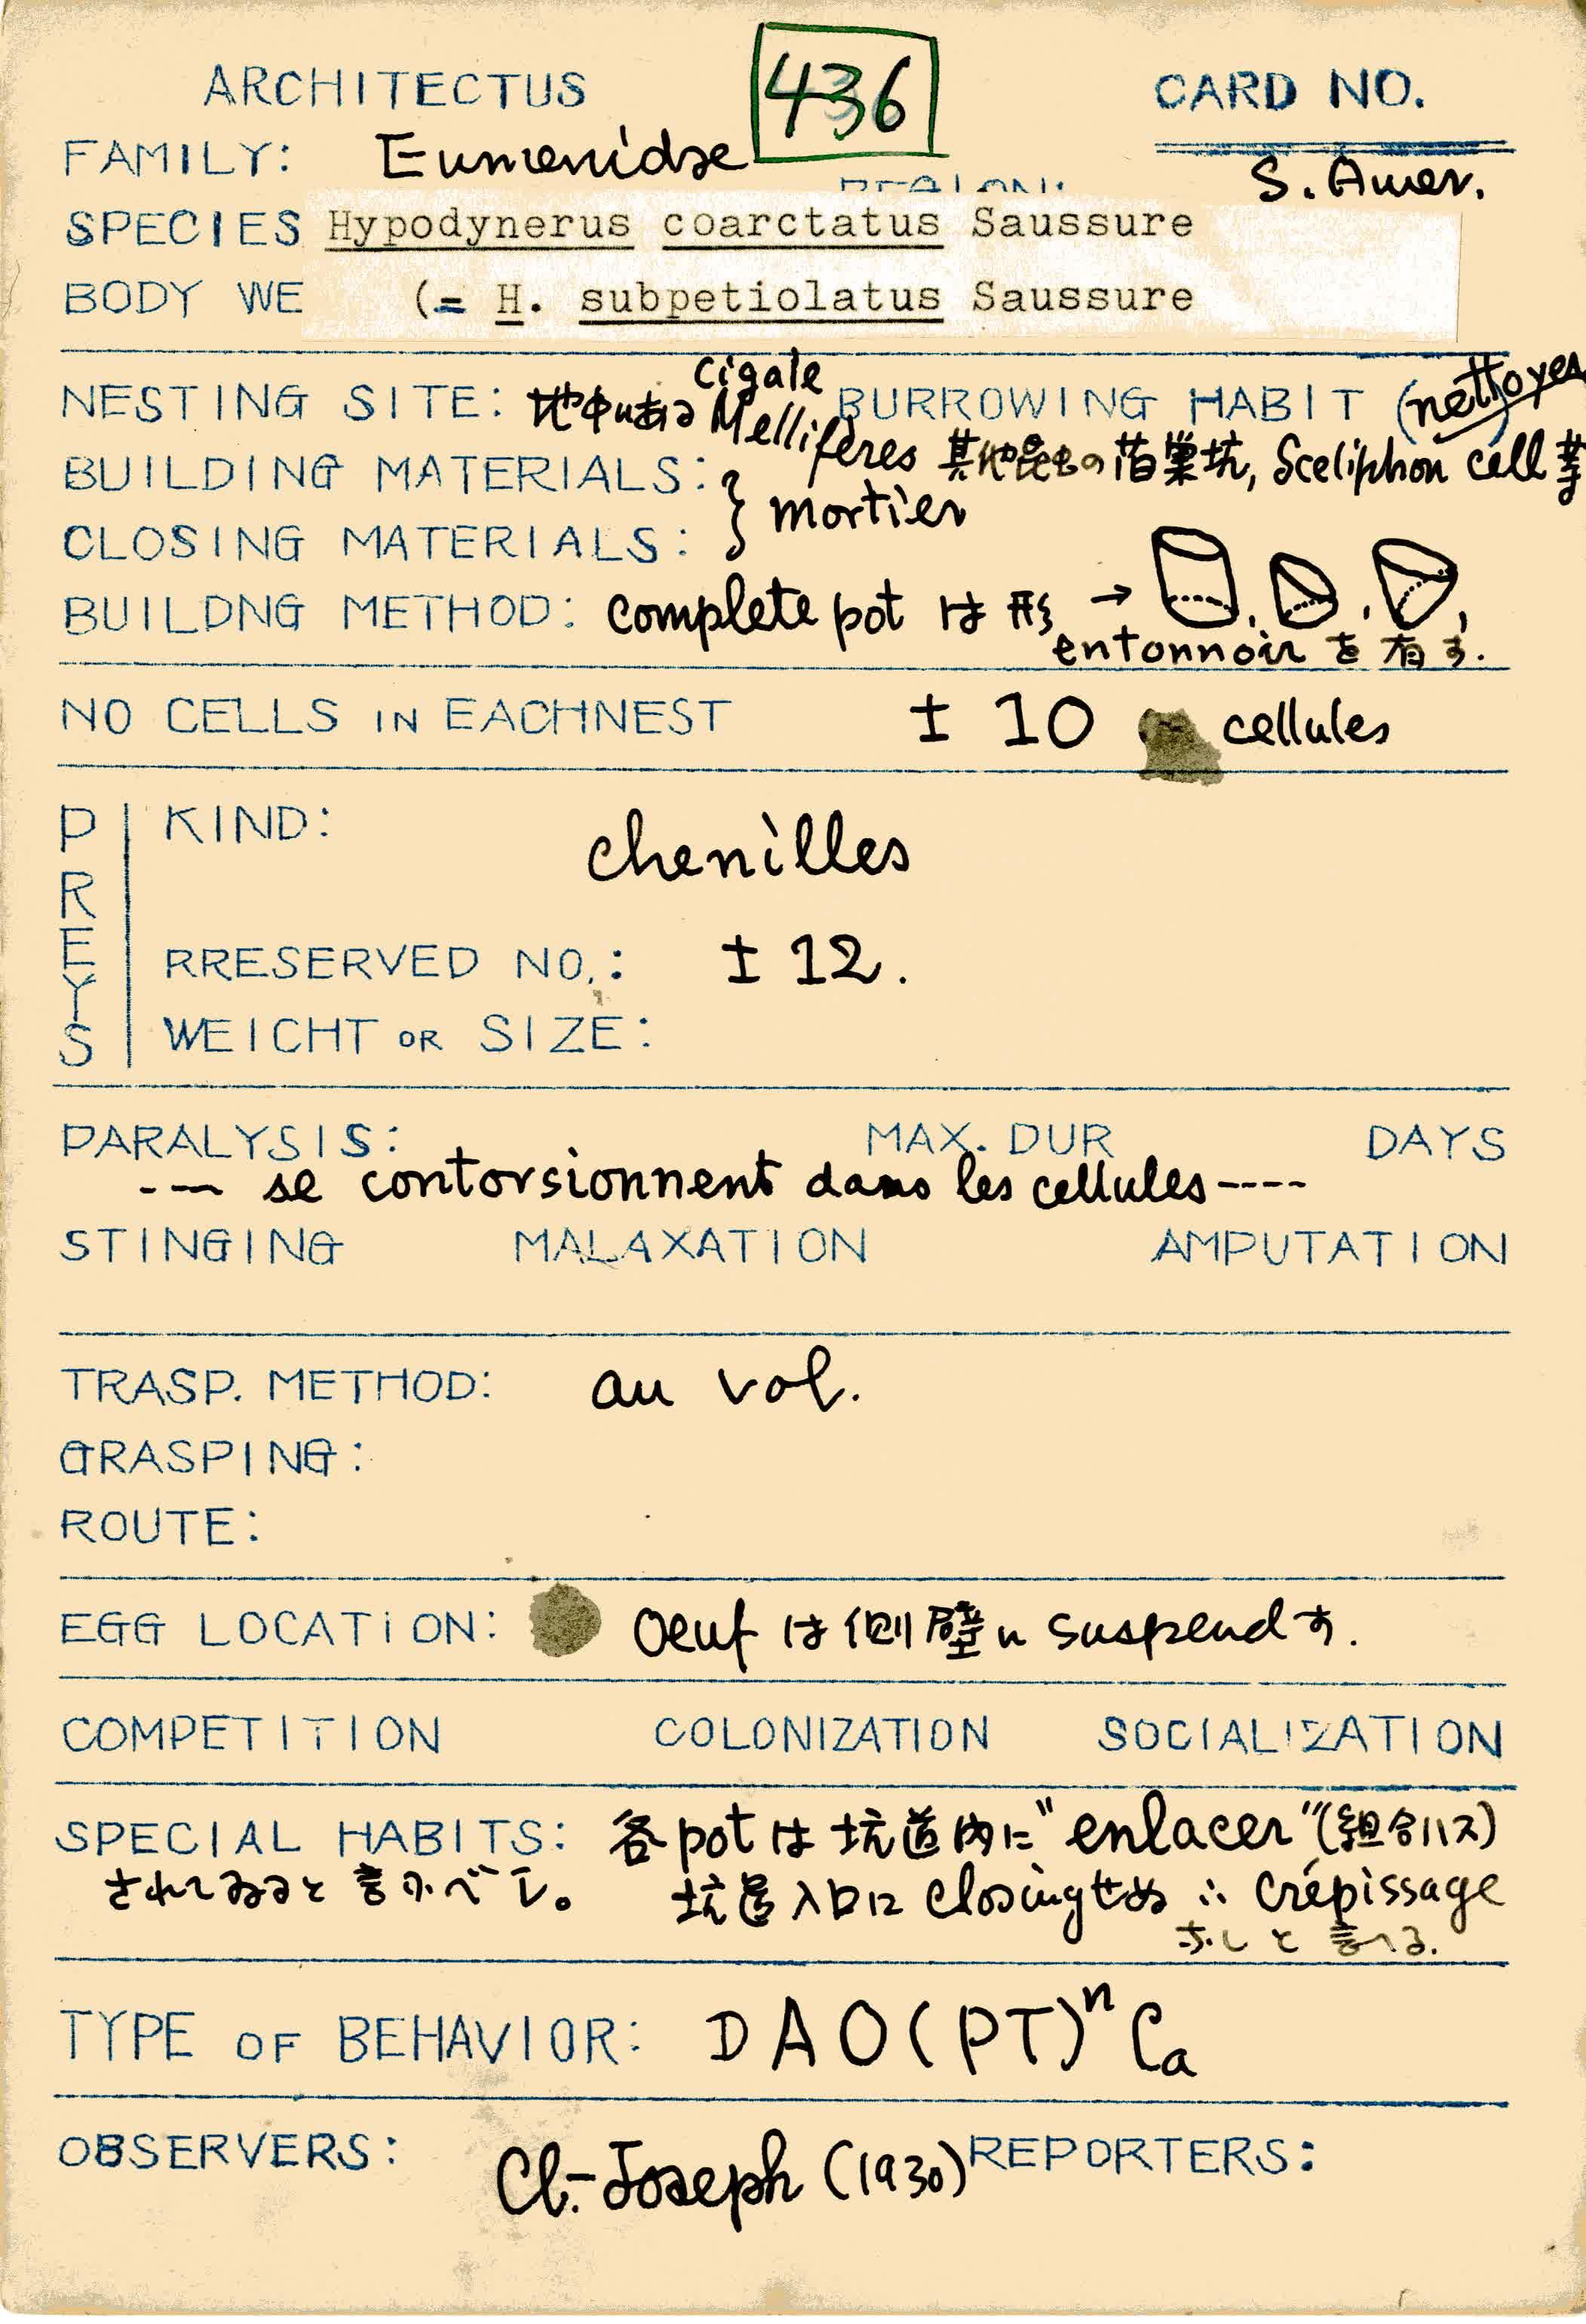 ARCHITECTUS 436 CARD NO.
FAMILY: Eumenidae REGION: S. Amer.
SPECIES Hypodynerus coarctatus Saussure
BODY WE (= H. subpetiolatus Saussure
cigale
NESTING SITE: 地中にある Mellifères BURROWING HABIT (nettoyer)
其他昆虫の旧巣坑, Sceliphon cell 等
BUILDING MATERIALS: } mortier
CLOSING MATERIALS:
BUILDNG METHOD: complete pot は形 →
entonnoir を有す.
NO CELLS IN EACHNEST ± 10 cellules
PREYS
KIND: chenilles
RRESERVED NO.: ± 12.
WEICHT OR SIZE:
PARALYSIS: MAX. DUR DAYS
--- se contorsionnent dans les cellules ----
STINGING MALAXATION AMPUTATION
TRASP. METHOD: au vol.
GRASPING:
ROUTE:
EGG LOCATION: Oeuf は側壁に suspend す.
COMPETITION COLONIZATION SOCIALIZATION
SPECIAL HABITS: 各 pot は坑道内に "enlacer" (組合ハス)
されてゐると言ふべし。 坑道入口に closing せぬ ∴ crépissage
なしと言へる.
TYPE OF BEHAVIOR: DAO(PT)ⁿCa
OBSERVERS: Cl.-Joseph (1930) REPORTERS: